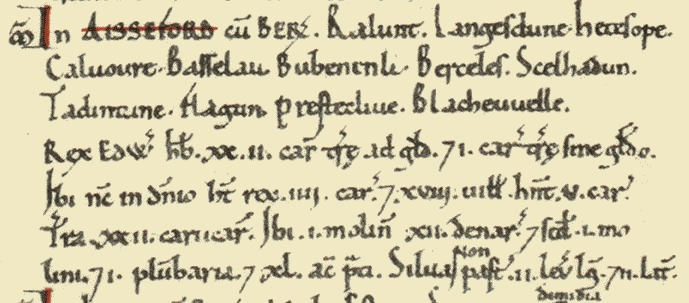 ꝳ In AISSEFORD cū BER̃. Ralunt. Langesdune. hetesope.
Caluoure. Basselau. Bubenenli. Berceles. Scelhadun.
Tadintune. Flagun. Prestecliue. Blacheuuelle.
Rex Edw̃ hb̃. xx.ii. car̃ træ̃. ad gld̃. ⁊ i. car̃ træ̃ sine gld̃o.
Ibi nc̃ in dñio ht̃ rex .iiii. car̃. ⁊ xviii. uill̃. hñt. v. car̃.
Tr̃a. xxii. carucar̃. Ibi .i. molin̄ xii. denar̃. ⁊ sed̃ .i. mo
lini. ⁊ i. plūbaria. ⁊ xl. ac̃ p̃ti. Silua past̃ Non .ii. leũ lg̃. ⁊ ii. lat̃.
dimidia